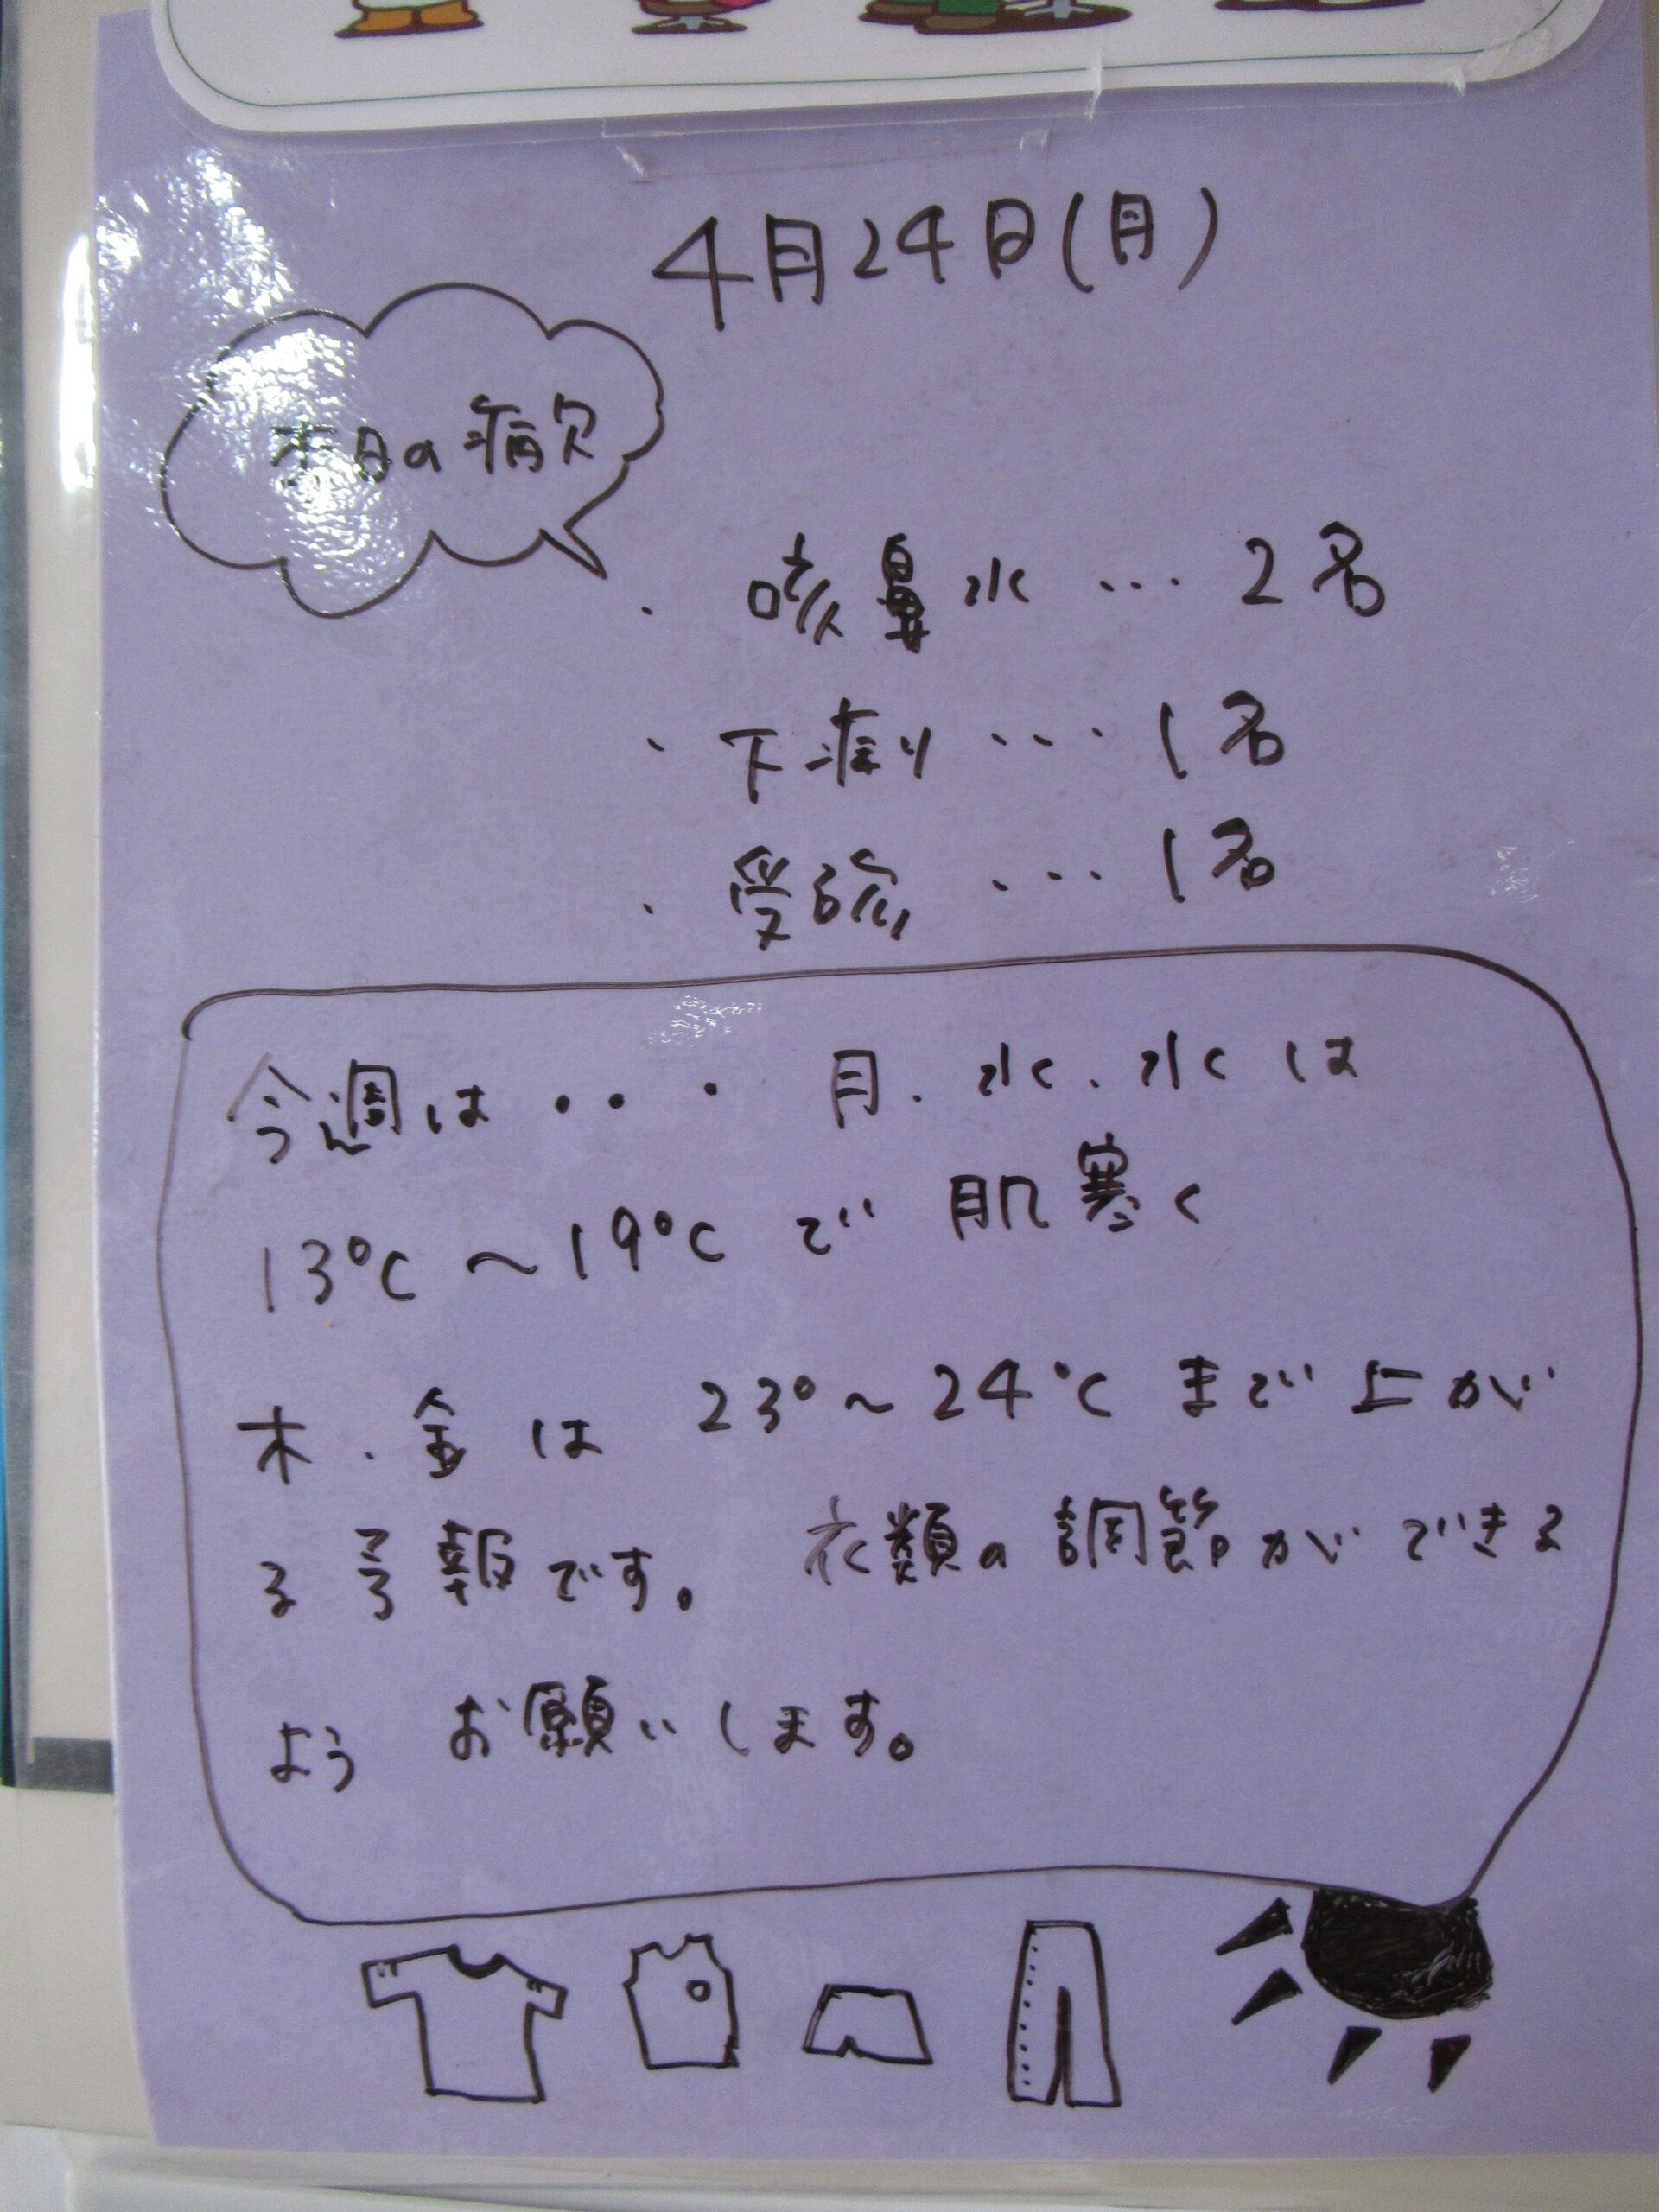 4月24日(月)
本日の病欠
・咳鼻水…2名
・下痢り…1名
・受診…1名
今週は・・・月.水.水は
13℃～19℃で肌寒く
木.金は 23°～24℃まで上が
る予報です。衣類の調節ができる
ようお願いします。